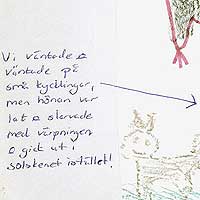 Vi väntade &
väntade på
små kycklingar,
men hönan var
lat & slarvade
med värpningen
& gick ut i
solskenet istället!